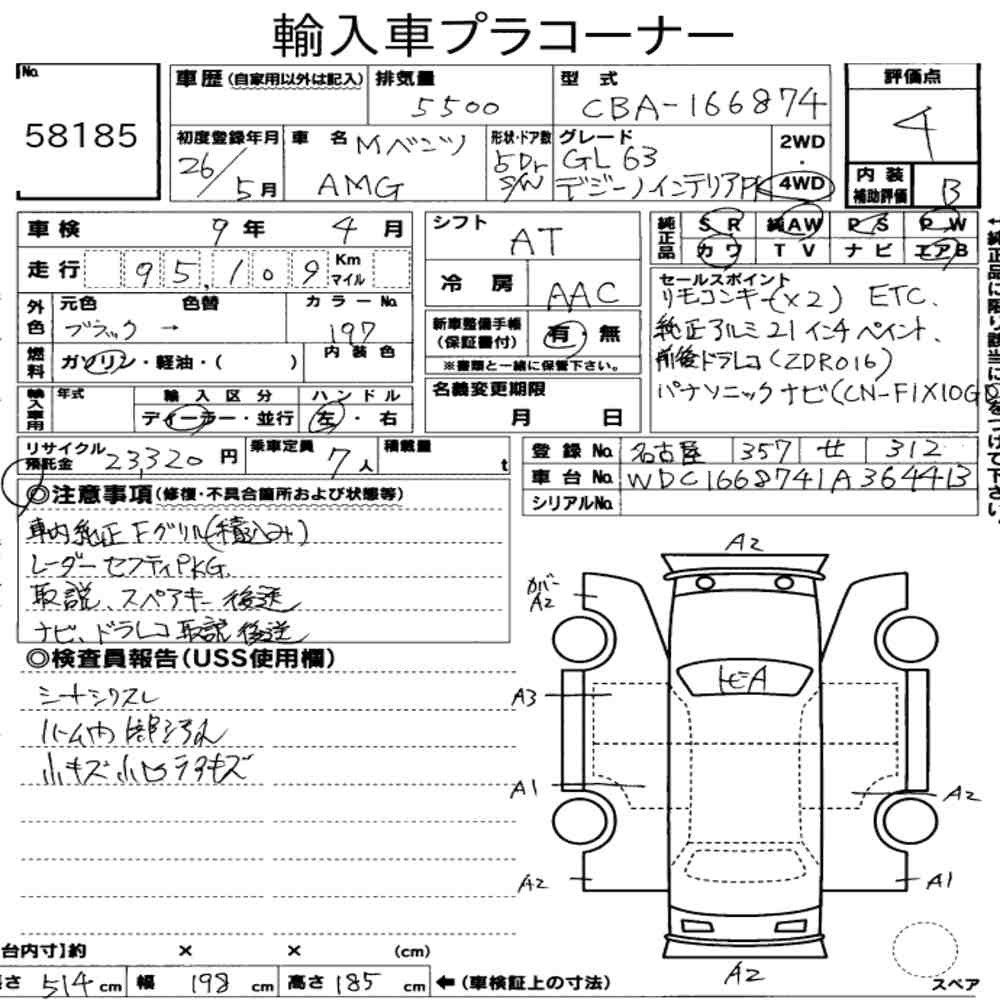 輸入車プラコーナー
No. 58185
車歴 (自家用以外は記入)
排気量 5500
型式 CBA-166874
評価点 4
初度登録年月 26/5月
車名 Mベンツ AMG
形状・ドア数 5Dr S/W
グレード GL63 デジーノインテリアPK
2WD・4WD
内装補助評価 B
車検 9年 4月
走行 95,109 Km マイル
シフト AT
純正品 SR 純AW PS PW
カワ TV ナビ エアB
冷房 AAC
外色 元色 ブラック → 色替 カラーNo. 197
セールスポイント
リモコンキー(×2) ETC.
純正アルミ21インチペイント.
前後ドラレコ(ZDR016)
パナソニックナビ(CN-F1X10GD
新車整備手帳(保証書付) 有・無
※書類と一緒に保管下さい。
燃料 ガソリン・軽油・( )
内装色
名義変更期限 月 日
輸入車用 年式 輸入区分 ディーラー・並行 ハンドル 左・右
リサイクル預託金 23,320円
乗車定員 7人
積載量 t
登録No. 名古屋 357 せ 312
車台No. WDC1668741A364413
シリアルNo.
◎注意事項(修復・不具合箇所および状態等)
車内純正Fグリル(積込み)
レーダーセフティPKG.
取説、スペアキー後送
ナビ、ドラレコ取説後送
◎検査員報告(USS使用欄)
シートシワスレ
小キズ
A2
カバーA2
トビA
A3
A1
A2
A2
A1
A2
台内寸】約 × × (cm)
さ 514cm 幅 198cm 高さ 185cm ←(車検証上の寸法)
スペア